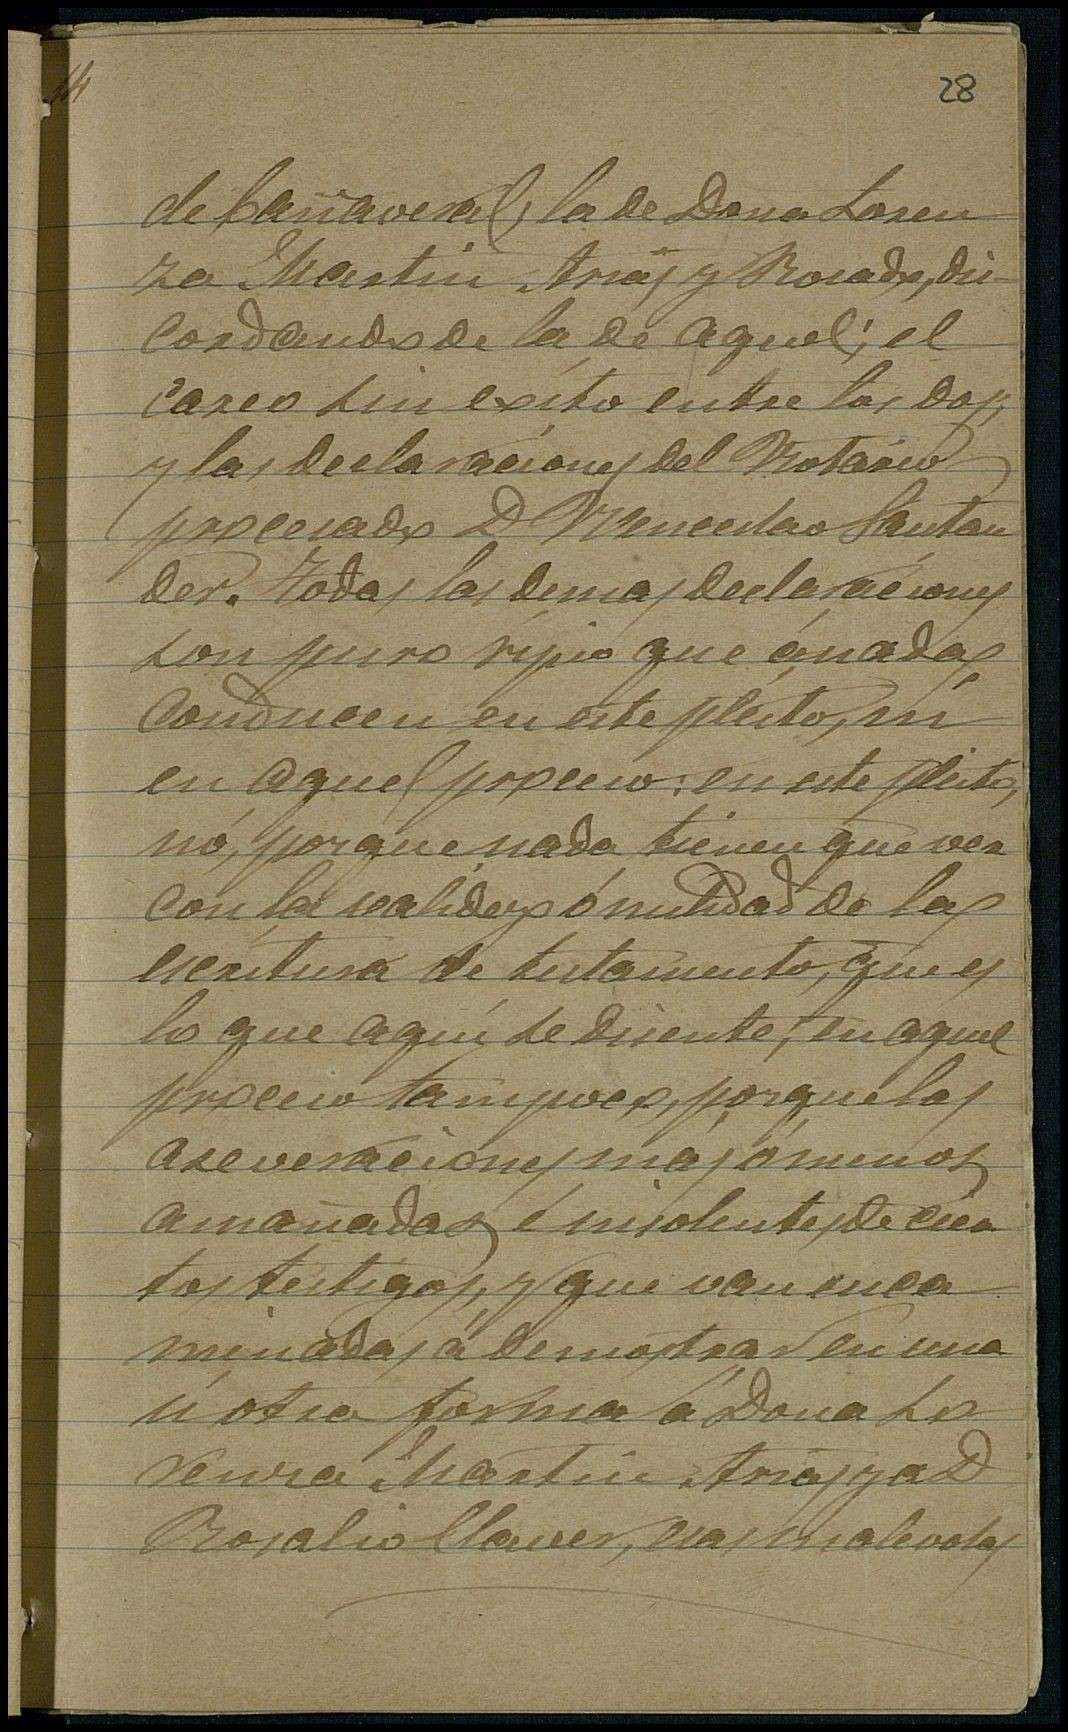 28
de Cañaveral, la de Dona Loren
za Martin Arias y Rosado, dis-
cordando de la de aquel; el
careo sin exíto entre los dos,
y las declaraciones del Notario
procesado D Wenceslao Santan
der. Todas las demas declaraciones
son puro rípio que á nada
conducen en este pleito, ni
en aquel proceso: en este pleito,
nó, porque nada tienen que ver
con la validez ó nulidad de la
escritura de testamento, que es
lo que aquí se discute; en aquel
proceso tampoco, porque las
aseveraciones más ó menos
amañadas é insolentes de cier
tos testigos, y que van enca
minadas á demostrar en una
ú otra forma á Dona Lo
renza Martin Arias y a D
Rosalio Claver, esas malevolas